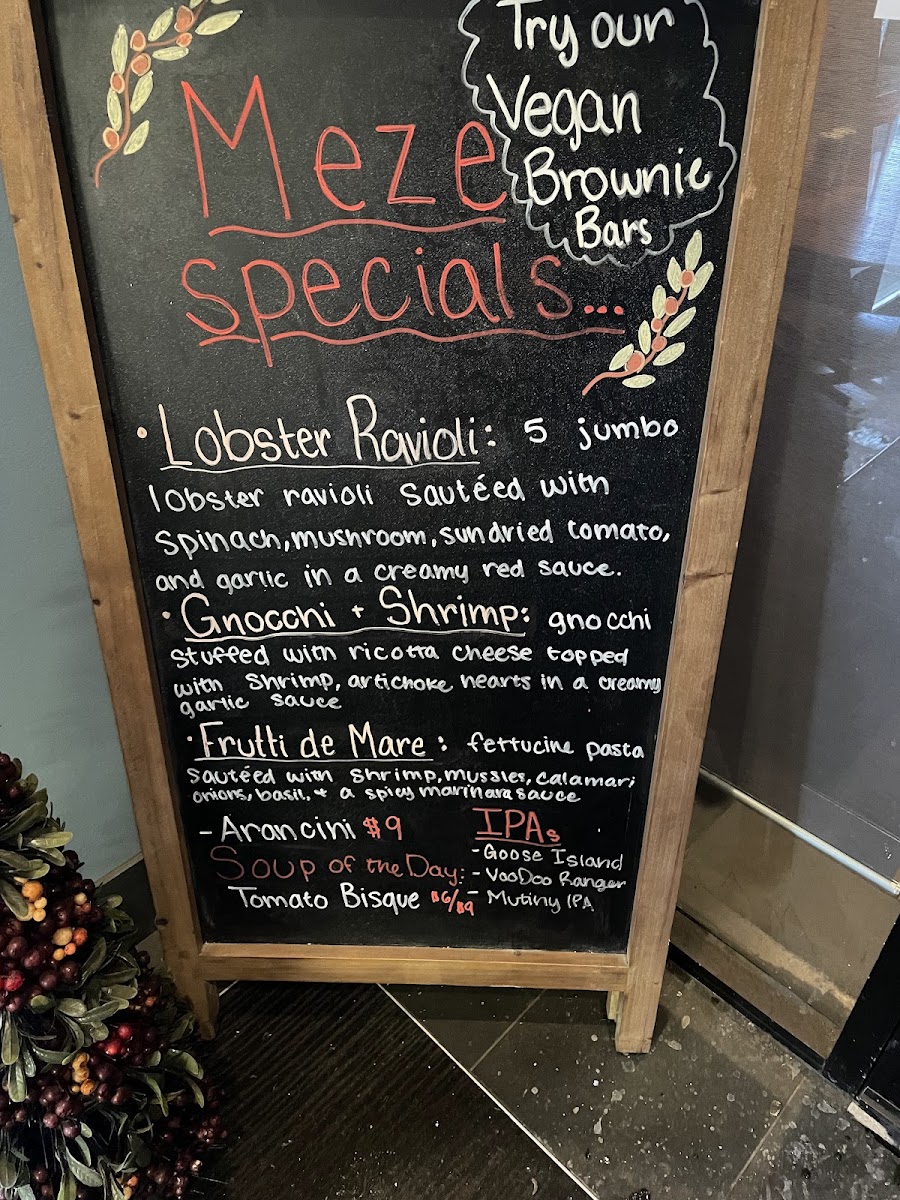 Try our
Vegan
Brownie
Bars
Meze
specials...
• Lobster Ravioli: 5 jumbo
lobster ravioli sautéed with
spinach, mushroom, sundried tomato,
and garlic in a creamy red sauce.
• Gnocchi + Shrimp: gnocchi
stuffed with ricotta cheese topped
with shrimp, artichoke hearts in a creamy
garlic sauce
• Frutti de Mare: fettucine pasta
sautéed with shrimp, mussles, calamari,
onions, basil, + a spicy marinara sauce
- Arancini $9
Soup of the Day:
Tomato Bisque $6/$9
IPAs
- Goose Island
- VooDoo Ranger
- Mutiny IPA